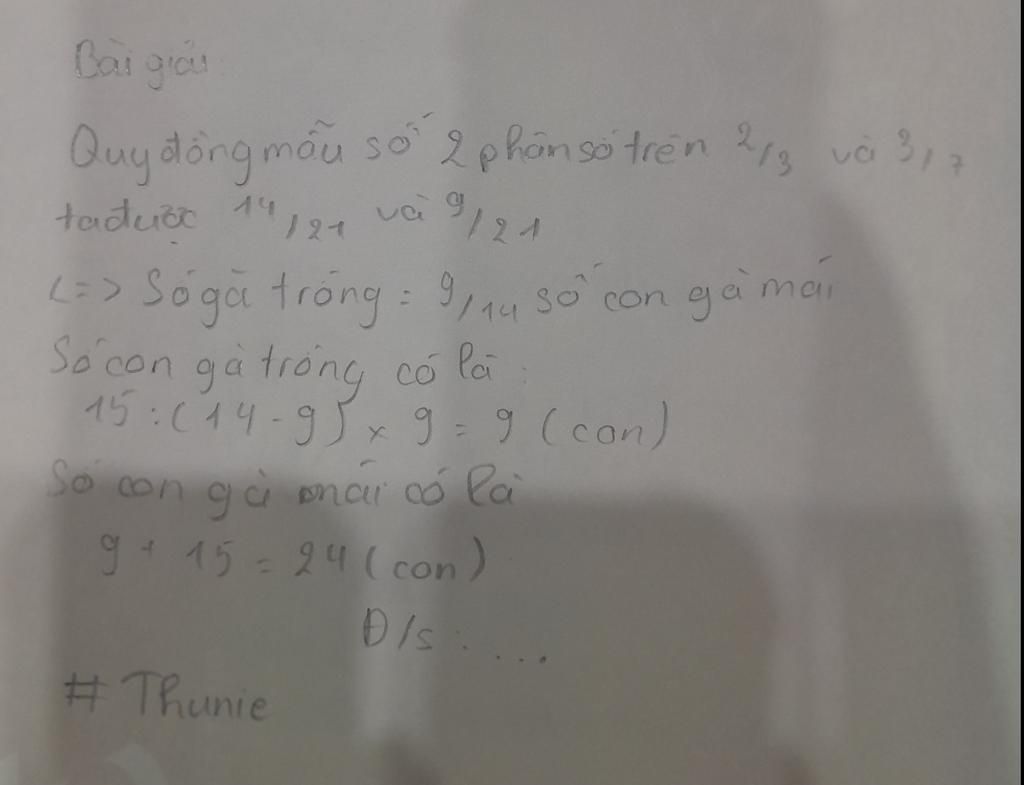 Bài giải
Quy đồng mẫu số 2 phân số trên 2/3 và 3/7
ta được 14/21 và 9/21
<=> Số gà trống = 9/14 số con gà mái
Số con gà trống có là:
15:(14-9) x 9 = 9 (con)
Số con gà mái có là
9 + 15 = 24 (con)
Đ/s: ....
# Thunie